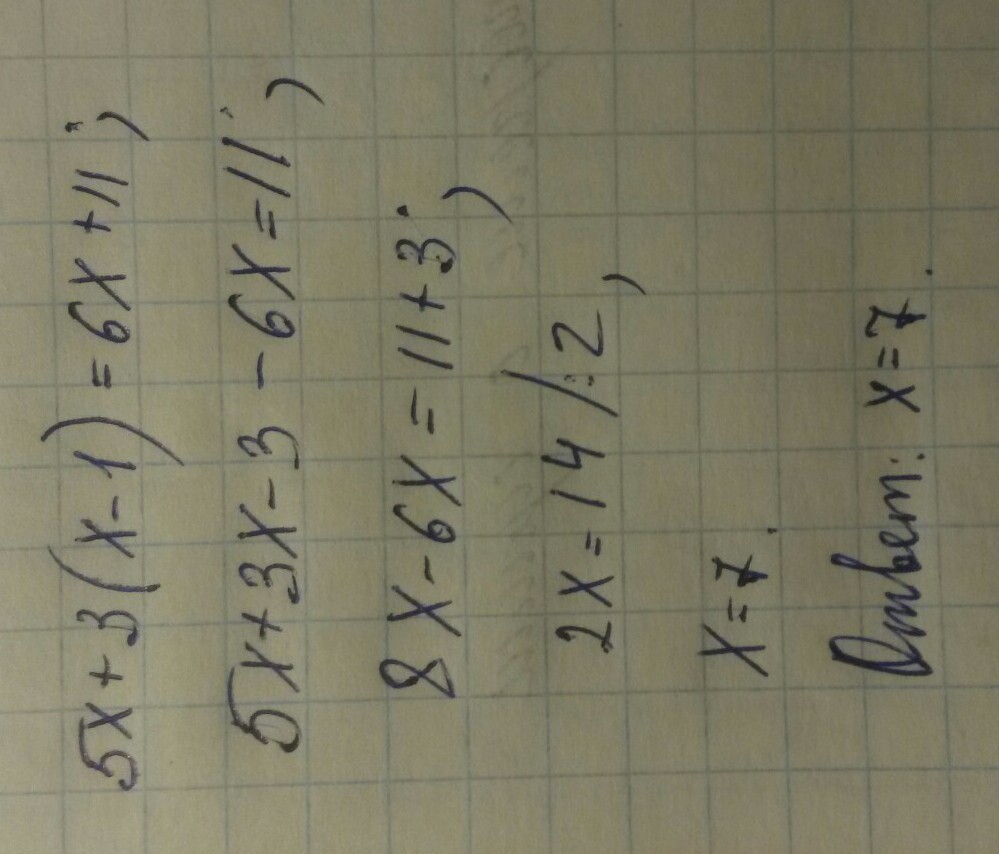 5x + 3(x - 1) = 6x + 11;
5x + 3x - 3 - 6x = 11;
8x - 6x = 11 + 3;
2x = 14 /:2,
x = 7.
Ответ: x = 7.